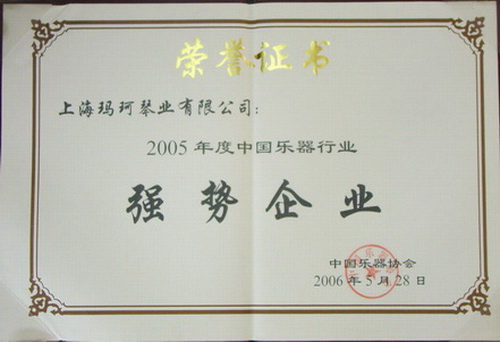 荣誉证书
上海玛珂琴业有限公司：
2005 年度中国乐器行业
强势企业
中国乐器协会
2006 年 5 月 28 日